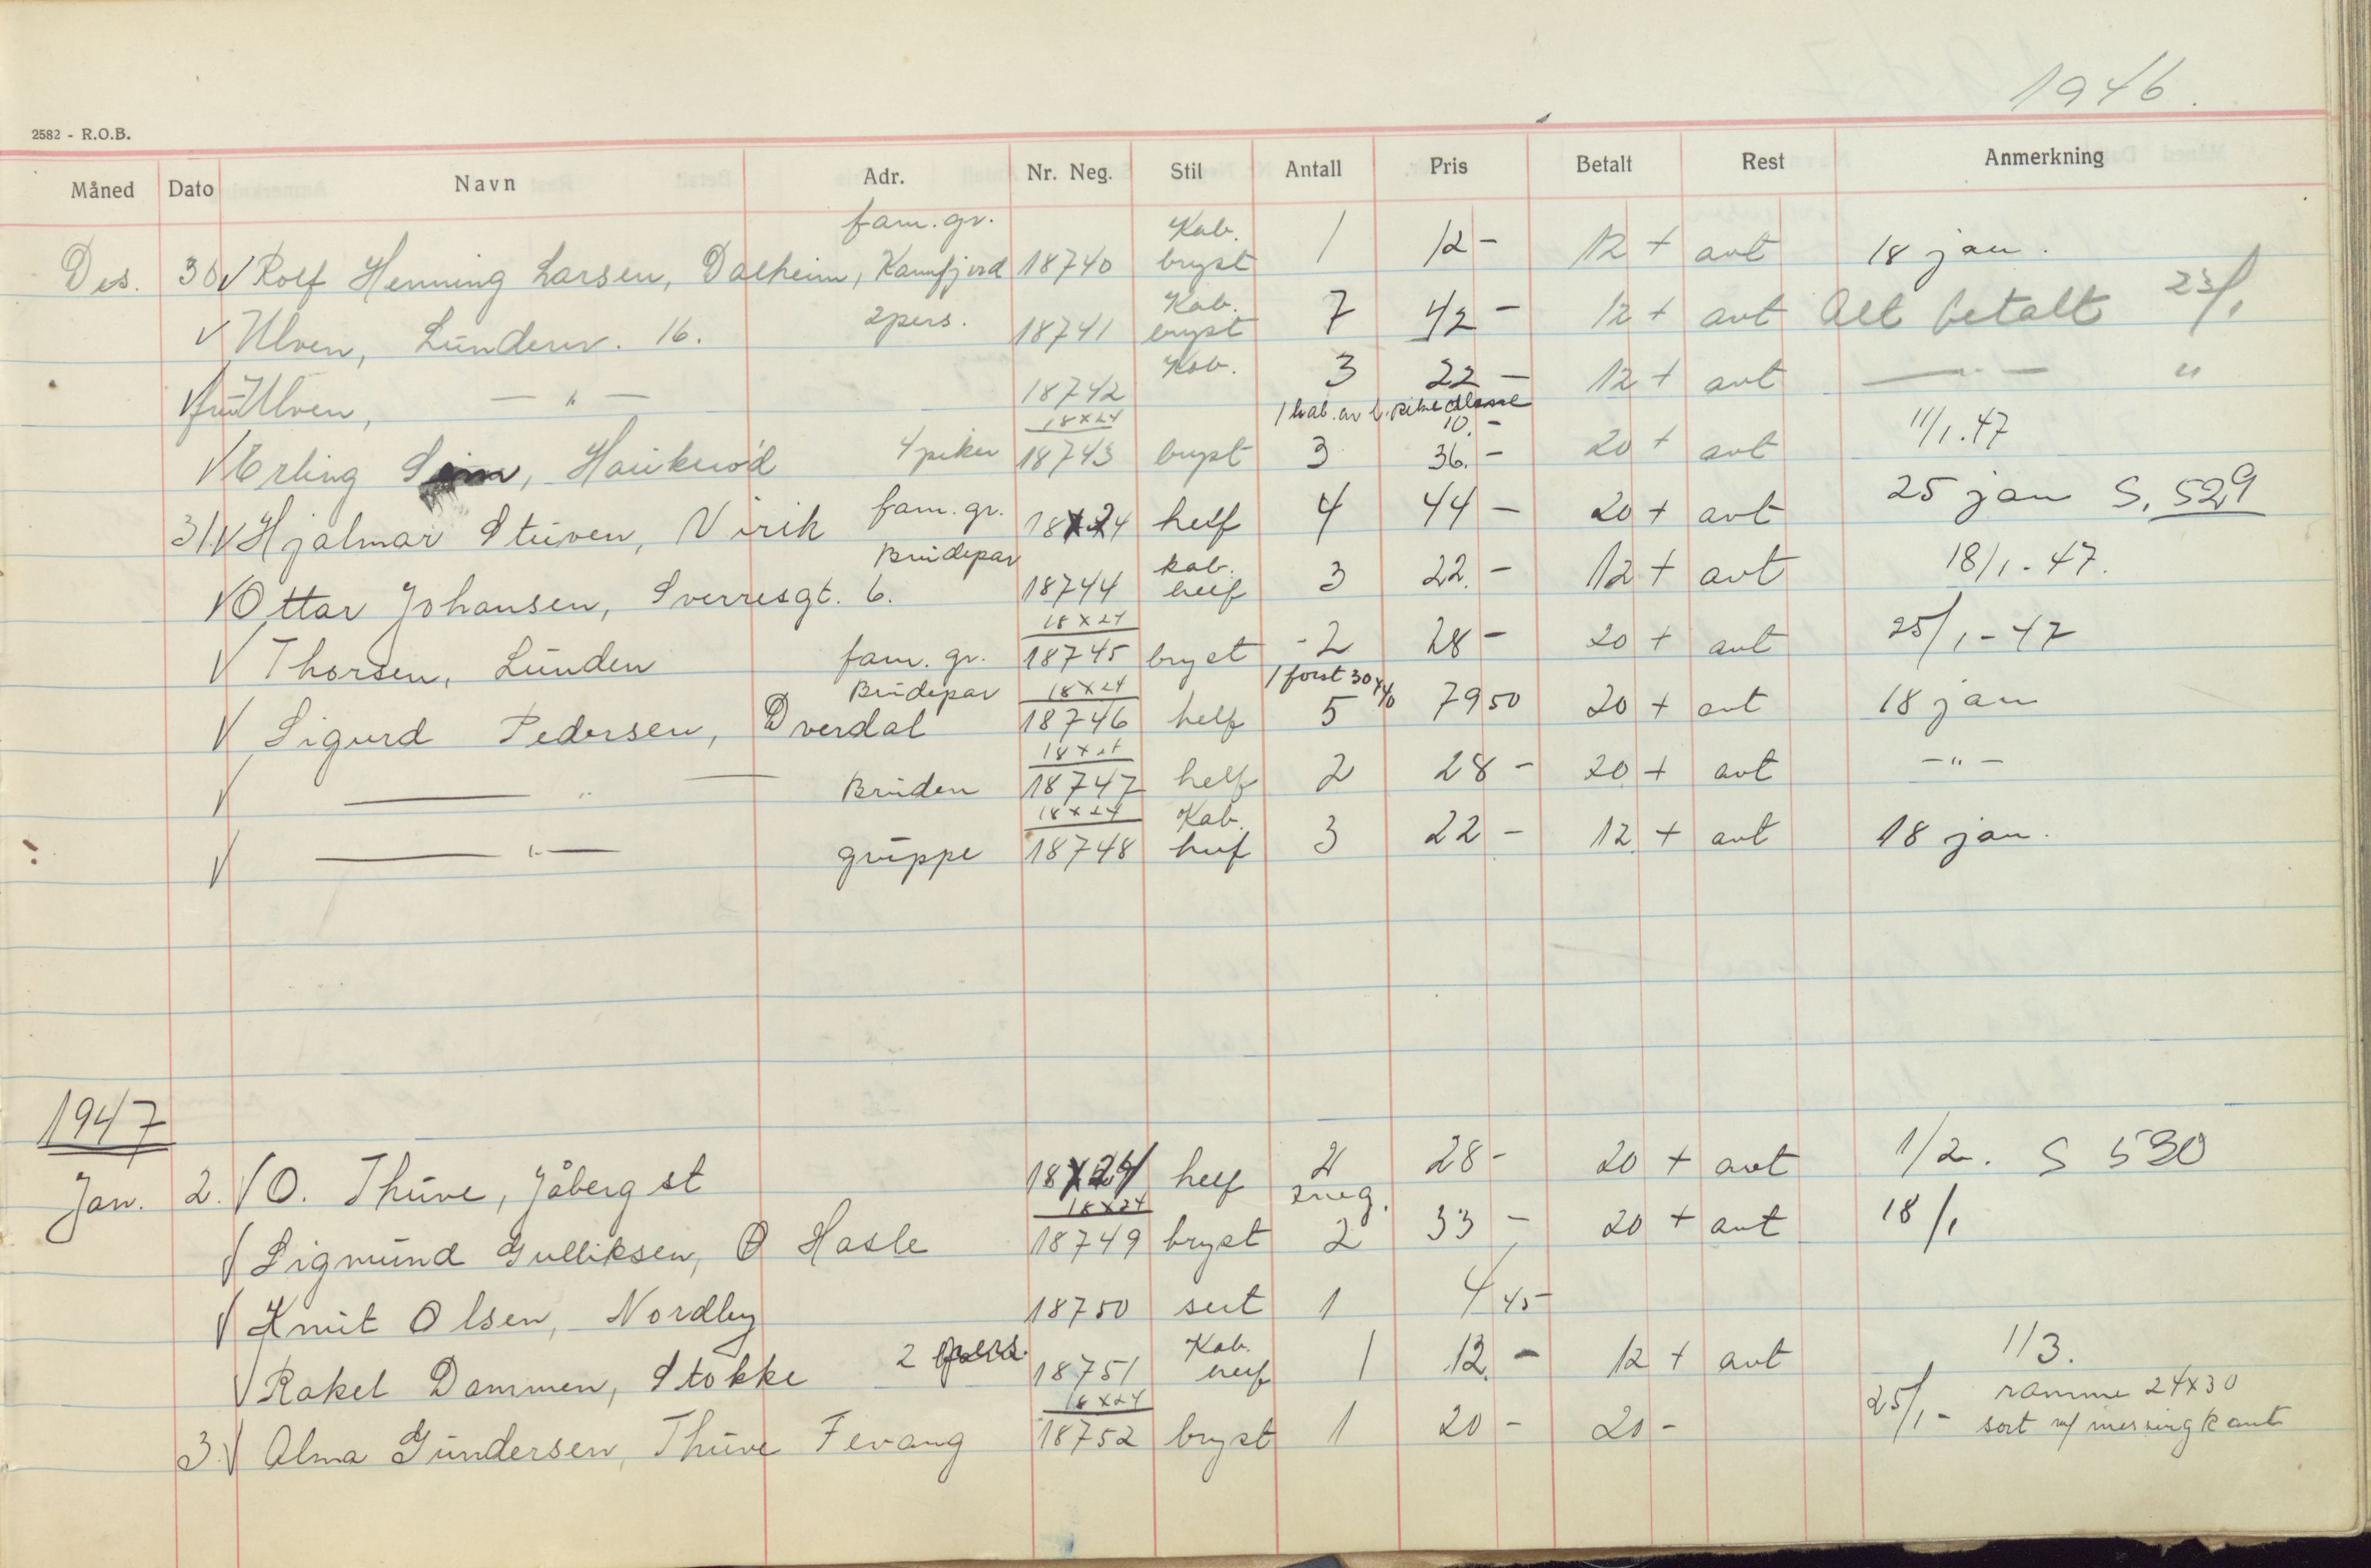 1946.
2582 - R.O.B.
Måned Dato Navn Adr. Nr. Neg. Stil Antall Pris Betalt Rest Anmerkning
fam. gr. Kab.
Des. 30 √ Rolf Henning Larsen, Dalheim, Kamfjord 18740 bryst 1 12 - 12 + avt 18 jan.
2 pers. Kab.
√ Ulven, Lunderv. 16. 18741 bryst 7 42 - 12 + avt Alt betalt 23/1
Kab.
√ fru Ulven, — " — 18742 3 22 - 12 + avt — " — "
18x24 1 kab. av 10.-
√ Erling, Haukerød 4 piker 18743 bryst 3 36.- 20 + avt 11/1.47
31. √ Hjalmar Stuven, Virik fam. gr. 18x24 helf 4 44 - 20 + avt 25 jan S. 529
Brudepar kab.
√ Ottar Johansen, Sverresgt. 6. 18744 helf 3 22.- 12 + avt 18/1-47.
18x24
√ Thorsen, Lunden fam. gr. 18745 bryst 2 28 - 20 + avt 25/1-47
Brudepar 18x24 1 forst 30x40
√ Sigurd Pedersen, Dverdal 18746 helf 5 79 50 20 + avt 18 jan
18x24
√ — " — Bruden 18747 helf 2 28 - 20 + avt - " -
18x24 Kab.
√ — " — gruppe 18748 huf 3 22 - 12 + avt 18 jan.
1947
Jan. 2. √ O. Thuve, Jåberg st 18x24 helf 2 28 - 20 + avt 1/2. S 530
18x24 2 neg.
√ Sigmund Gulliksen, Ø Hasle 18749 bryst 2 33 - 20 + avt 18/1
√ Knut Olsen, Nordby 18750 sert 1 4 45-
Kab.
√ Rakel Dammen, Stokke 2 pers. 18751 helf 1 12.- 12 + avt 1/3.
18x24 ramme 24x30
3. √ Alma Gundersen, Thuve Fevang 18752 bryst 1 20 - 20 - 25/1 - sort m/ messingkant